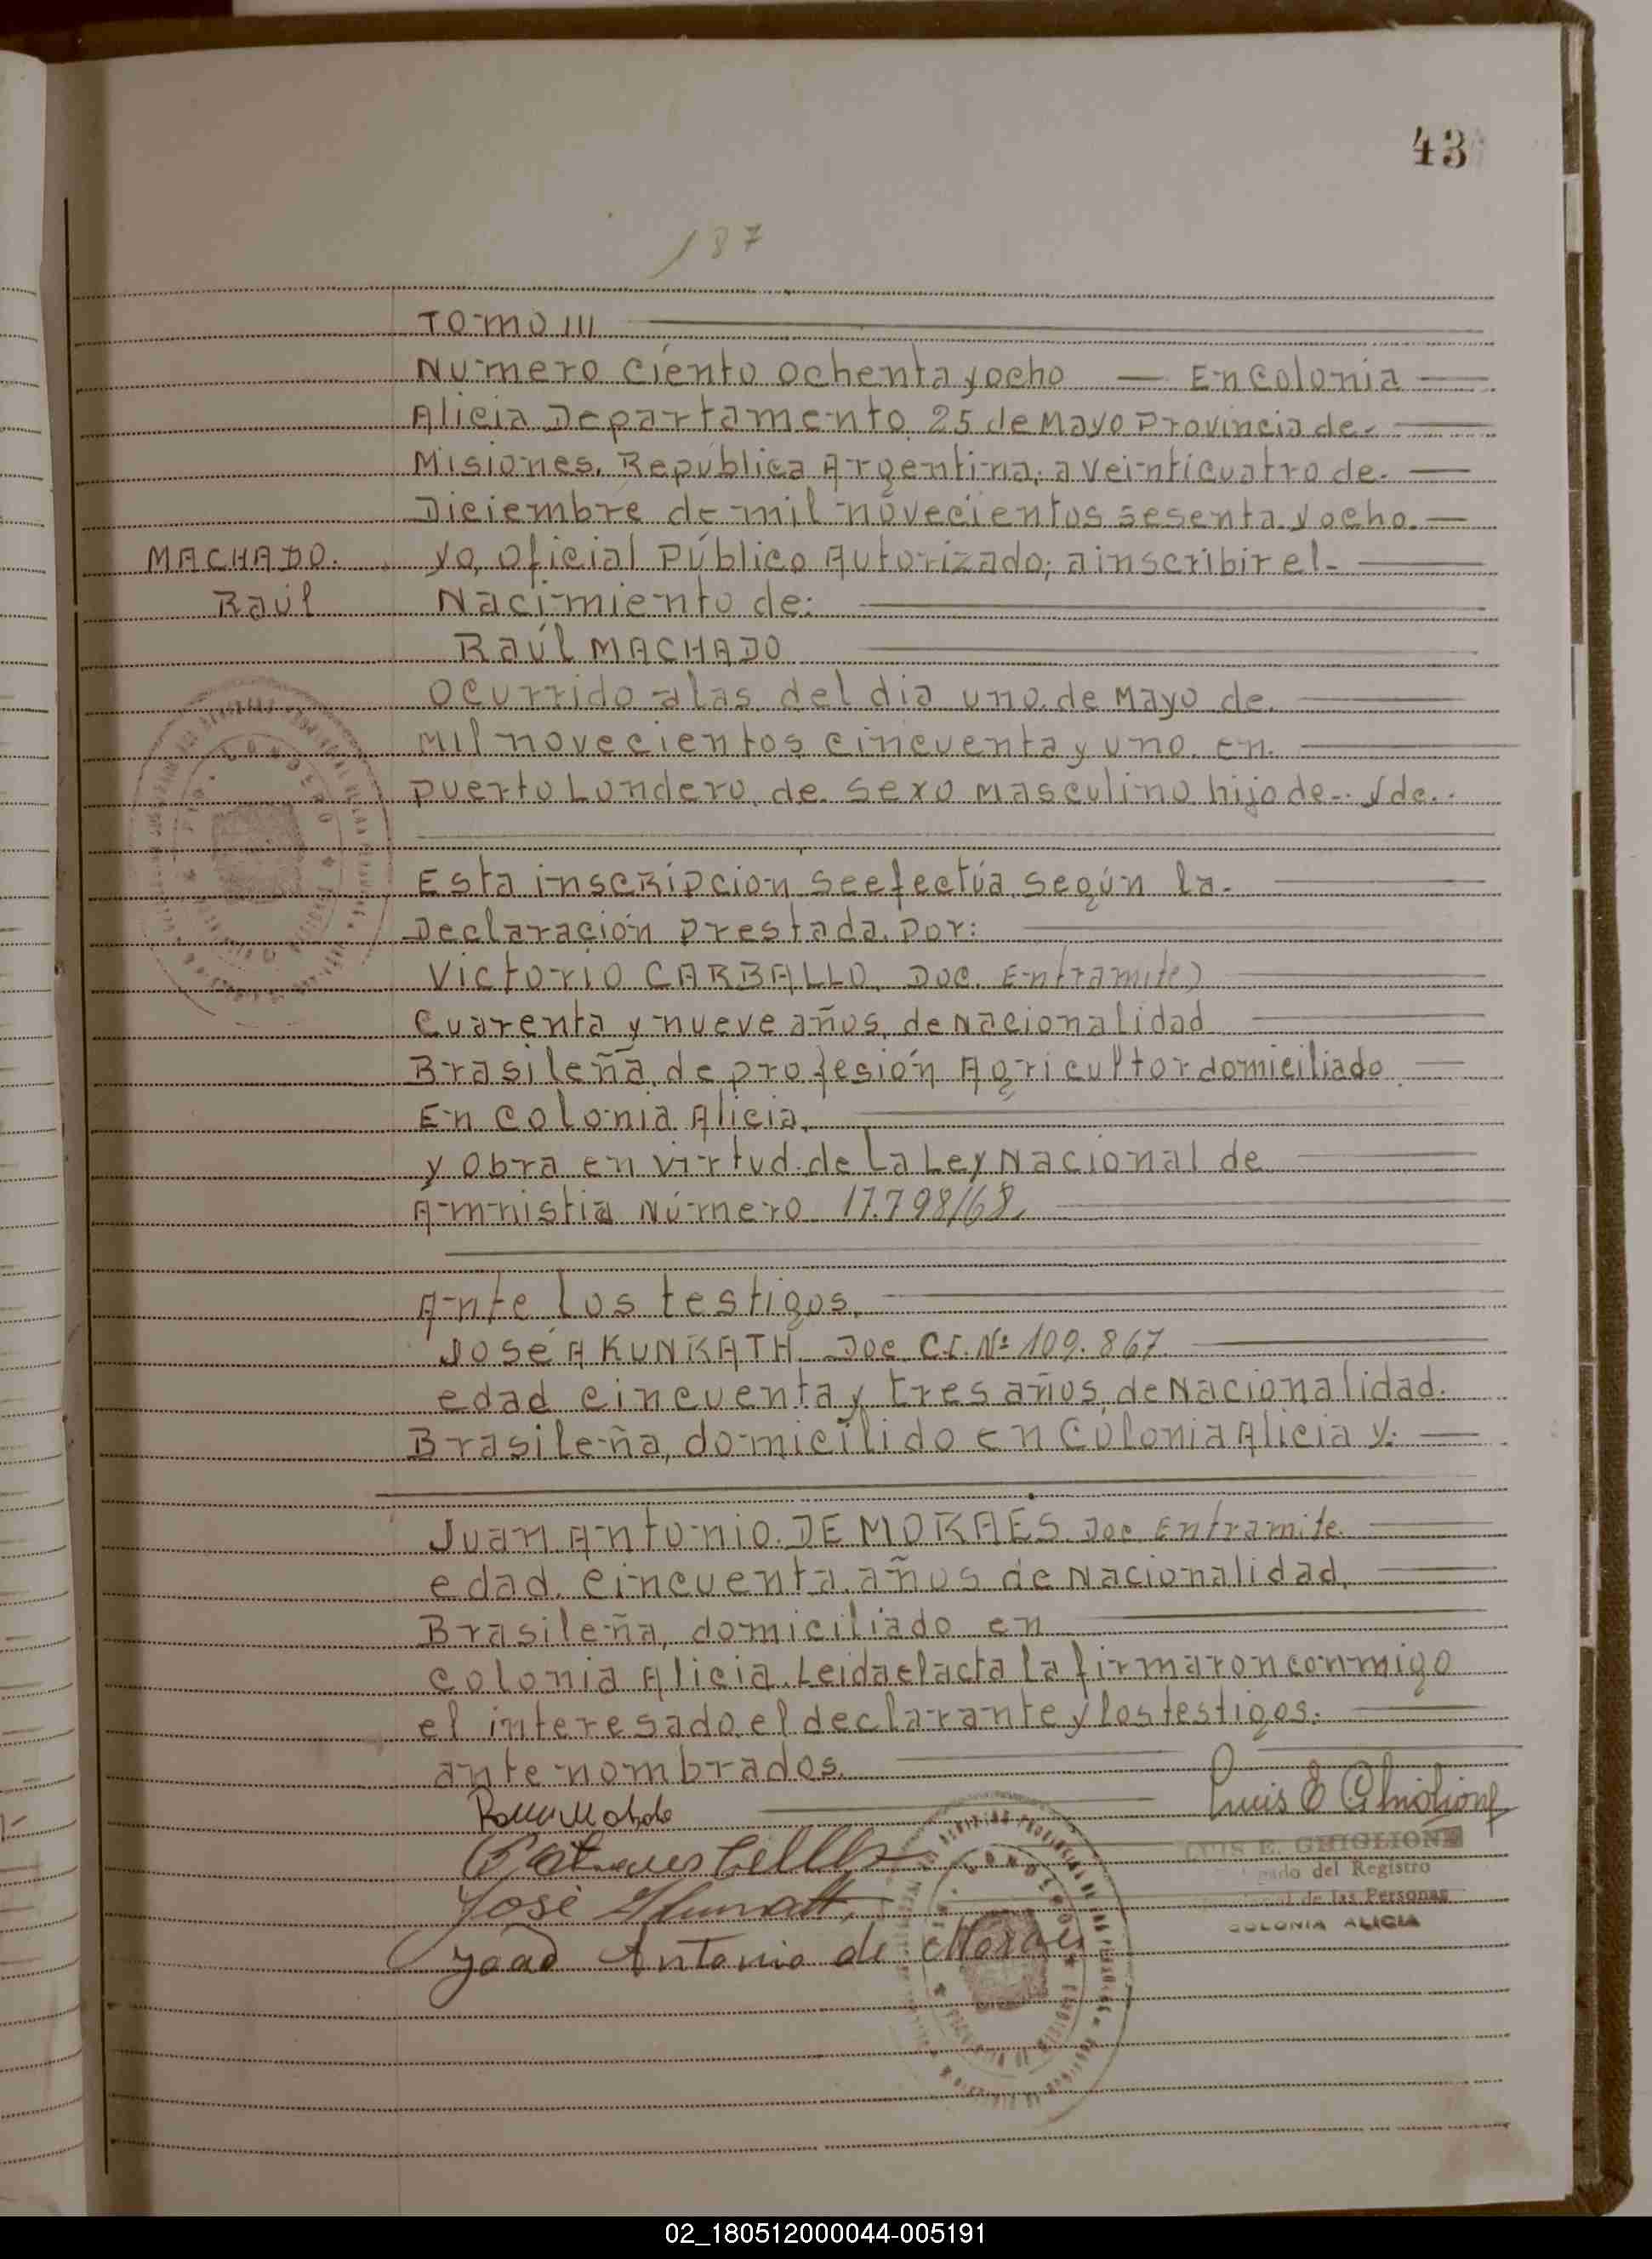 43
187
TOMO III
Numero ciento ochenta y ocho — En Colonia
Alicia Departamento 25 de Mayo Provincia de.
Misiones, República Argentina, a veinticuatro de.
Diciembre de mil novecientos sesenta y ocho.
MACHADO. yo, Oficial Público Autorizado; a inscribir el-
Raúl Nacimiento de:
Raúl MACHADO
Ocurrido a las del dia uno de Mayo de.
Mil novecientos cincuenta y uno. en.
Puerto Londero, de sexo masculino hijo de.. y de..
Esta inscripcion se efectúa según la.
Declaración prestada por:
Victorio CARBALLO, Doc. En tramite)
Cuarenta y nueve años, de nacionalidad
Brasileña, de profesión Agricultor domiciliado
En Colonia Alicia,
y Obra en virtud de la Ley Nacional de
Amnistia Número 17.798/68.
Ante los testigos,
José A KUNKATH. Doc C.I. Nº 109.867.
edad cincuenta y tres años, de Nacionalidad.
Brasileña, domicilido en Colonia Alicia y.
Juan Antonio. DE MORAES. Doc. En tramite.
edad, cincuenta años de Nacionalidad,
Brasileña, domiciliado en
Colonia Alicia. Leida el acta la firmaron conmigo
el interesado, el declarante y los testigos.
ante nombrados.
Luis E Ghiglione
LUIS E. GHIGLIONE
del Registro
de las Personas
COLONIA ALICIA
José
Joao Antonio de Moraes
02_180512000044-005191